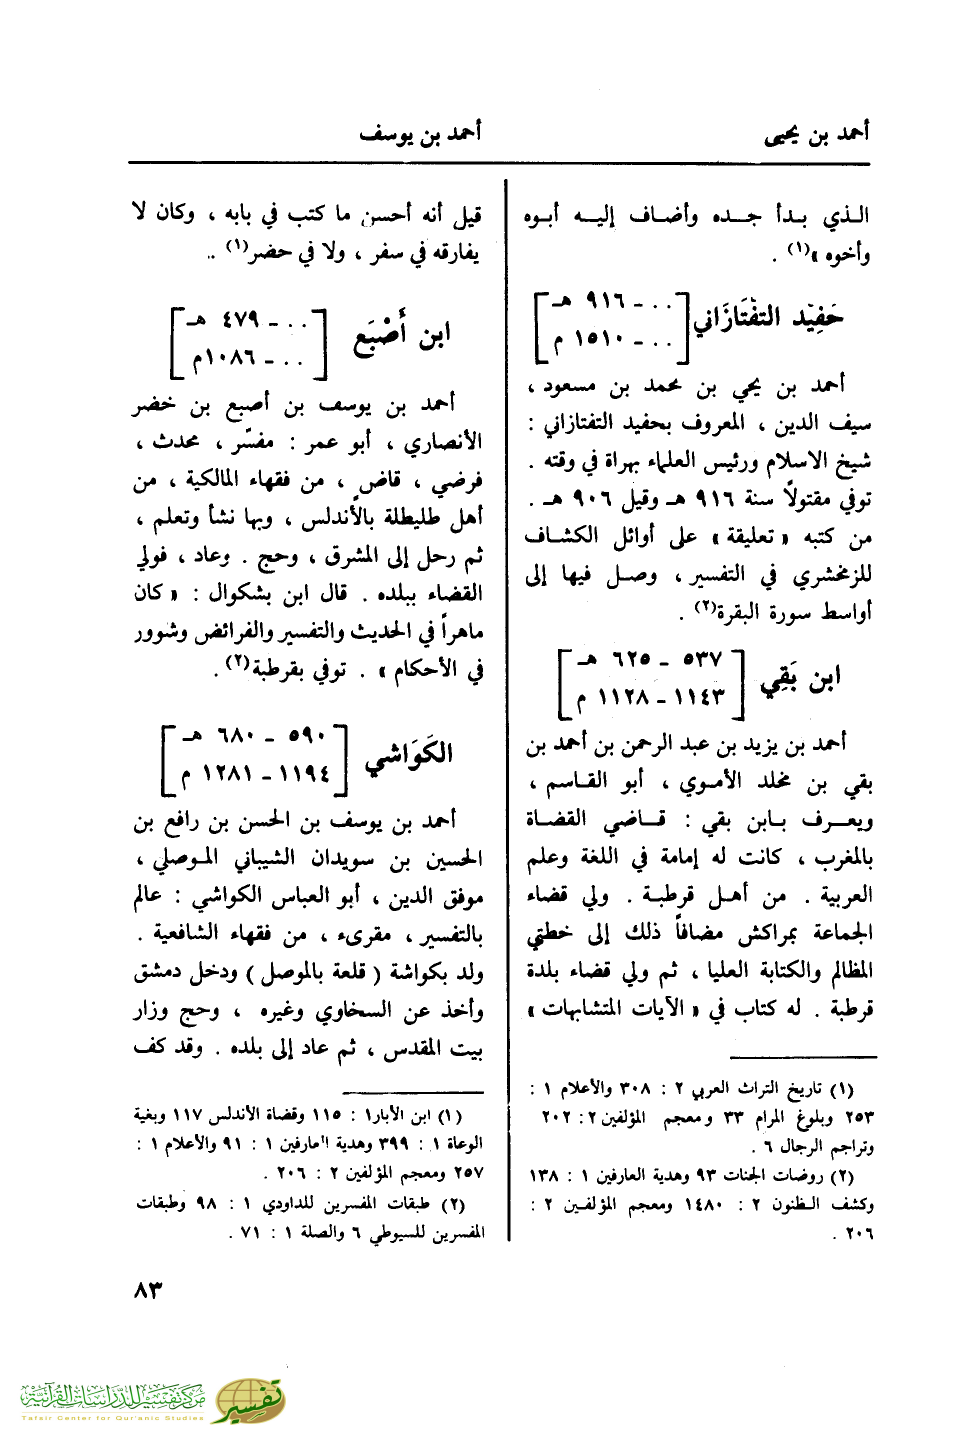 أحمد بن يحيى
أحمد بن يوسف
الـذي بـدأ جـده وأضـاف إليـه أبـوه
وأخوه »(١) .
حَفِيْد التفْتَازَاني
[ . . ـ ٩١٦ هـ
. . ـ ١٥١٠ م ]
أحمد بن يحي بن محمد بن مسعود ،
سيف الدين ، المعروف بحفيد التفتازاني :
شيخ الاسلام ورئيس العلماء بهراة في وقته .
توفي مقتولاً سنة ٩١٦ هـ وقيل ٩٠٦ هـ .
من كتبه « تعليقة » على أوائل الكشاف
للزمخشري في التفسير ، وصـل فيها إلى
أواسط سورة البقرة(٢) .
ابن بَقِي
[ ٥٣٧ ـ ٦٢٥ هـ
١١٤٣ ـ ١١٢٨ م ]
أحمد بن يزيد بن عبد الرحمن بن أحمد بن
بقي بن مخلد الأمـوي ، أبو القـاسم ،
ويعـرف بـابن بقي : قـاضي القضـاة
بالمغرب ، كانت له إمامة في اللغة وعلم
العربية . من أهـل قرطبـة . ولي قضاء
الجماعة بمراكش مضافاً ذلك إلى خطتي
المظالم والكتابة العليا ، ثم ولي قضاء بلدة
قرطبة . له كتاب في « الآيات المتشابهات »
(١) تاريخ التراث العربي ٢ : ٣٠٨ والأعلام ١ :
٢٥٣ وبلوغ المرام ٣٣ ومعجم المؤلفين ٢ : ٢٠٢
وتراجم الرجال ٦ .
(٢) روضات الجنات ٩٣ وهدية العارفين ١ : ١٣٨
وكشف الـظنون ٢ : ١٤٨٠ ومعجم المؤلفـين ٢ :
٢٠٦ .
قيل أنه أحسن ما كتب في بابه ، وكان لا
يفارقه في سفر ، ولا في حضر(١) ..
ابن أَصْبَع
[ . . ـ ٤٧٩ هـ
. . ـ ١٠٨٦م ]
أحمد بن يوسف بن أصبع بن خضر
الأنصاري ، أبو عمر : مفسّر ، محدث ،
فرضي ، قاضٍ ، من فقهاء المالكية ، من
أهل طليطلة بالأندلس ، وبها نشأ وتعلم ،
ثم رحل إلى المشرق ، وحج . وعاد ، فولي
القضاء ببلده . قال ابن بشكوال : « كان
ماهراً في الحديث والتفسير والفرائض وشوور
في الأحكام » . توفي بقرطبة(٢) .
الكَوَاشي
[ ٥٩٠ ـ ٦٨٠ هـ
١١٩٤ ـ ١٢٨١ م ]
أحمد بن يوسف بن الحسن بن رافع بن
الحسين بن سويدان الشيباني المـوصلي ،
موفق الدين ، أبو العباس الكواشي : عالم
بالتفسير ، مقرىء ، من فقهاء الشافعية .
ولد بكواشة ( قلعة بالموصل ) ودخل دمشق
وأخذ عن السخاوي وغيره ، وحج وزار
بيت المقدس ، ثم عاد إلى بلده . وقد كف
(١) ابن الأبار١ : ١١٥ وقضاة الأندلس ١١٧ وبغية
الوعاة ١ : ٣٩٩ وهدية العارفين ١ : ٩١ والأعلام ١ :
٢٥٧ ومعجم المؤلفين ٢ : ٢٠٦ .
(٢) طبقات المفسرين للداودي ١ : ٩٨ وطبقات
المفسرين للسيوطي ٦ والصلة ١ : ٧١ .
٨٣
مركز تفسير للدراسات القرآنية
Tafsir Center for Qur'anic Studies
تفسير